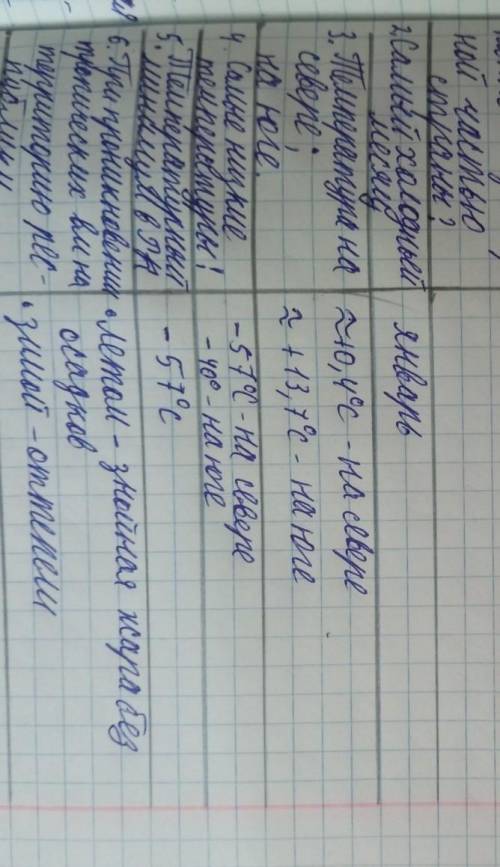 ной частью
страны?
2. Самый холодный
месяц
январь
3. Температура на
севере,
на юге.
≈+0,4°С - на севере
≈ +13,7°С - на юге
4. Самые низкие
температуры!
-57°С - на севере
-40° - на юге
5. Температурный
минимум в РК
-57°С
6. При проникновении
тропических вм на
территорию рес-
публики
• летом - знойная жара без
осадков
• зимой - оттепели